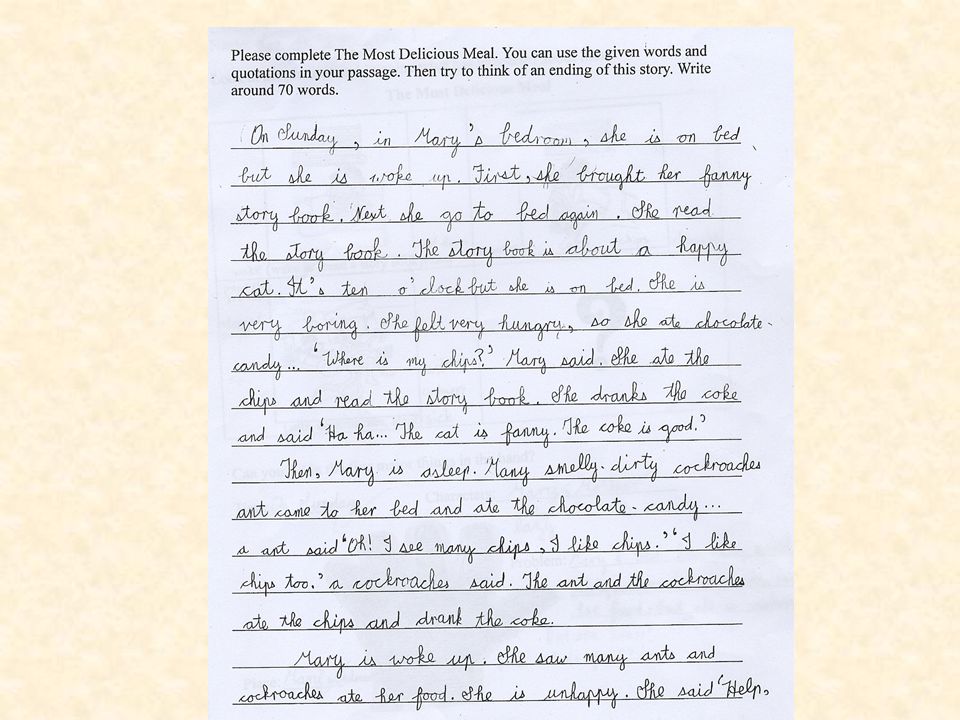 Please complete The Most Delicious Meal. You can use the given words and
quotations in your passage. Then try to think of an ending of this story. Write
around 70 words.
On Sunday, in Mary's bedroom, she is on bed
but she is woke up. First, she brought her fanny
story book. Next she go to bed again. She read
the story book. The story book is about a happy
cat. It's ten o'clock but she is on bed. She is
very boring. She felt very hungry, so she ate chocolate-
candy... 'Where is my chips?' Mary said. She ate the
chips and read the story book. She dranks the coke
and said 'Ha ha... The cat is fanny. The coke is good.'
Then, Mary is asleep. Many smelly-dirty cockroaches
ant came to her bed and ate the chocolate-candy...
a ant said 'Oh! I see many chips, I like chips.' 'I like
chips too.' a cockroaches said. The ant and the cockroaches
ate the chips and drank the coke.
Mary is woke up. She saw many ants and
cockroaches ate her food. She is unhappy. She said 'Help,